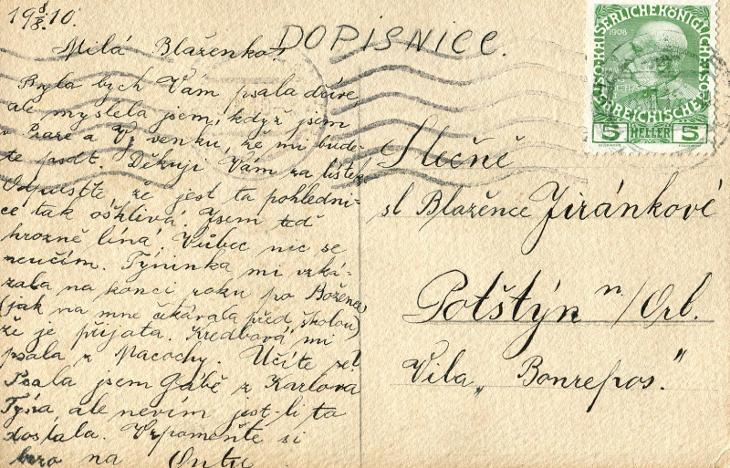 19 8/8. 10.
Milá Blaženko!
Byla bych Vám psala dříve,
ale myslela jsem, když jsem
v Praze a Vy venku, že mi bude-
te psát. Děkuji Vám za lístek
Odpusťte, že jest ta pohledni-
ce tak ošklivá! Jsem teď
hrozně líná! Vůbec nic se
neučím. Týninka mi vzká-
zala na konci roku po Boženě
(jak na mne čekávala před školou)
že je přijata. Kredbová mi
psala z Macochy. Učíte se?
Psala jsem Gábě z Karlova
Týna, ale nevím jest-li to
dostala. Vzpomeňte si
brzo na
DOPISNICE.
1908
5 HELLER 5
Slečně
sl Blažence Jiránkové
Potštýn n/Orl.
Vila „Bonrepos."